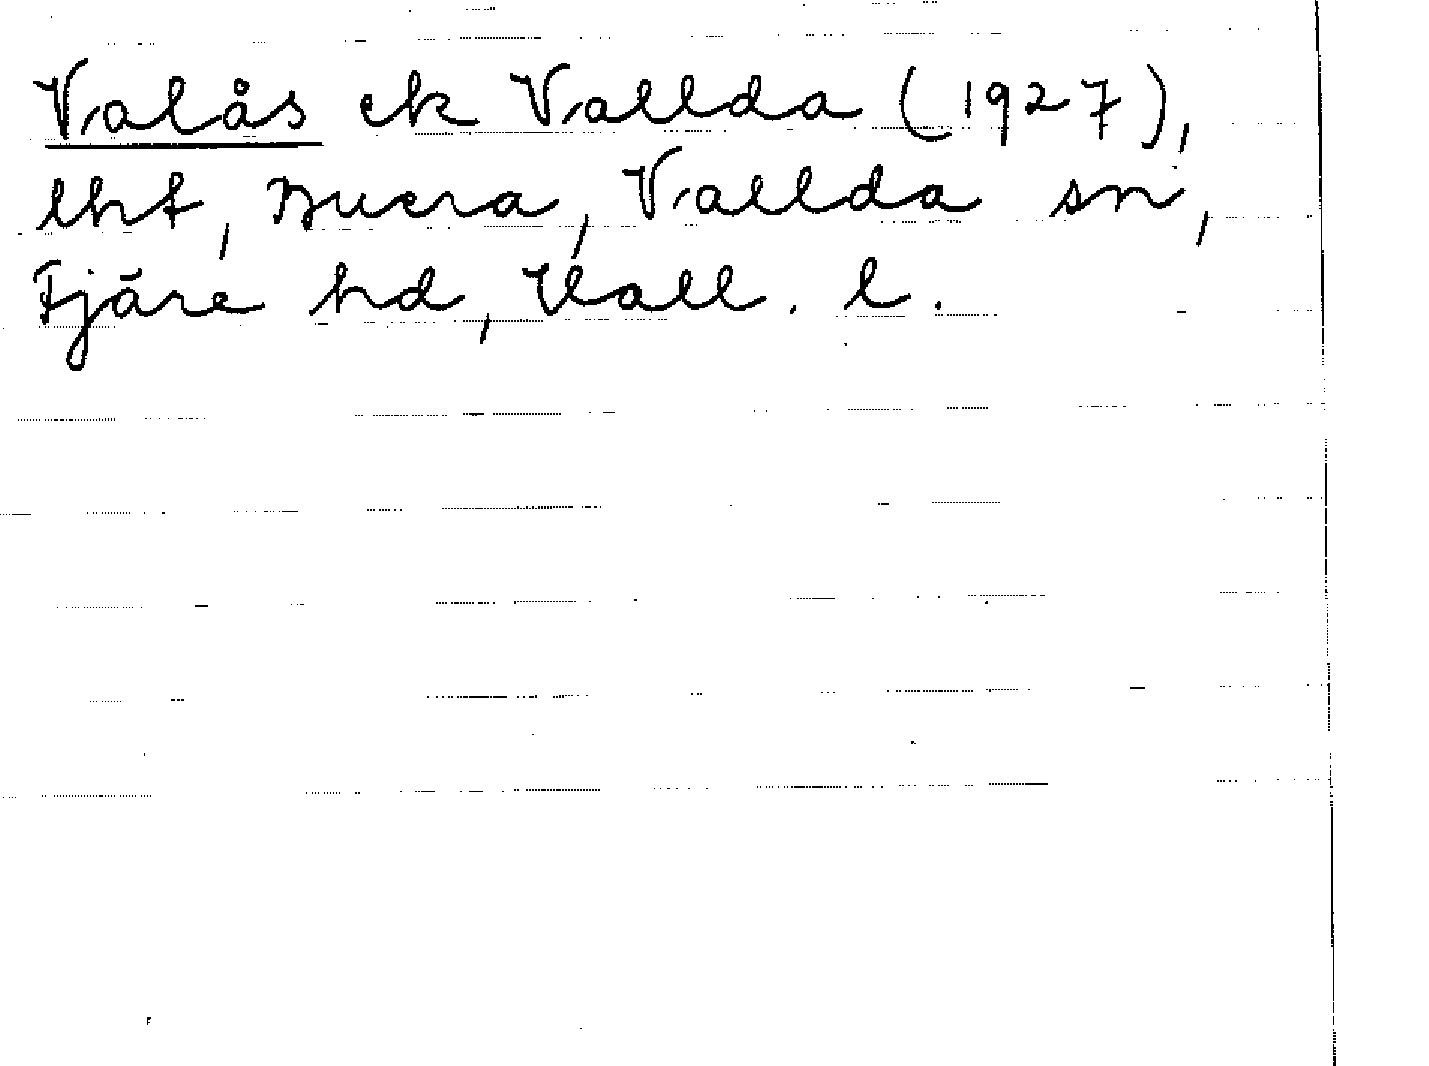 Valås ek Vallda (1927),
lht, Buera, Vallda sn,
Fjäre hd, Hall. l.